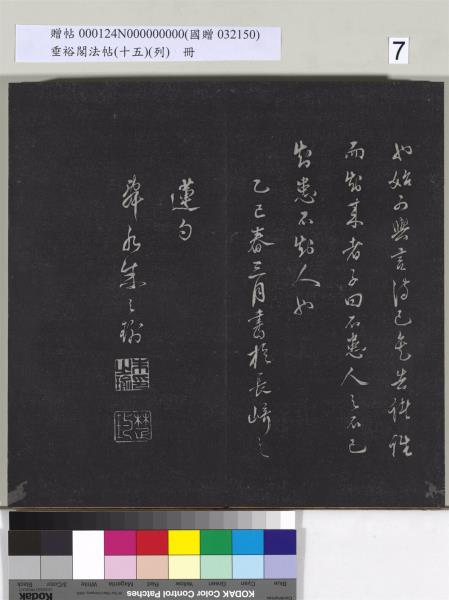 贈帖 000124N000000000(國贈 032150)
垂裕閣法帖(十五)(列) 冊
7
也始可與言詩已矣告諸往
而知来者子曰不患人之不己
知患不知人也
乙巳春三月書於長崎之
蓮勺
舜水朱之瑜
KODAK Color Control Patches
Blue
Cyan
Green
Yellow
Red
Magenta
White
3/Color
Black